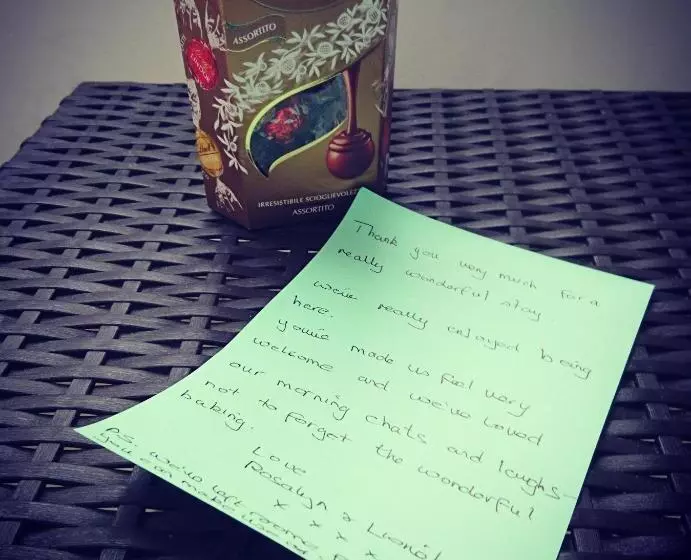 ASSORTITO
IRRESISTIBILE SCIOGLIEVOLEZZ
ASSORTITO
Thank you very much for a
really wonderful stay
we've really enjoyed being
here.
you've made us feel very
welcome and we've loved
our morning chats and laughs -
not to forget the wonderful
baking.
Love
Rosalyn &
x x x x
PS. we've left some
you can make use of